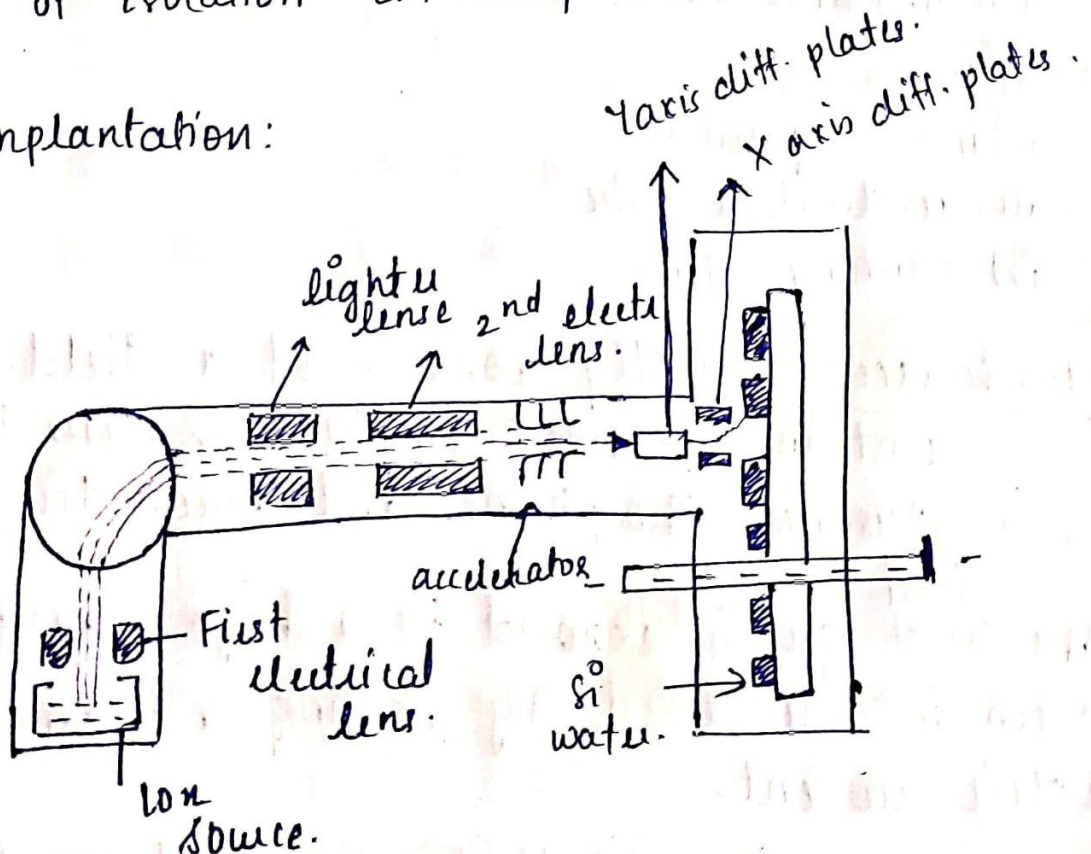 of isolation
mplantation:
Yaxis diff. plates.
X axis diff. plates.
lighter
lense
2nd electr
lens.
accelerator
First
electrical
lens.
Si
water.
Ion
source.